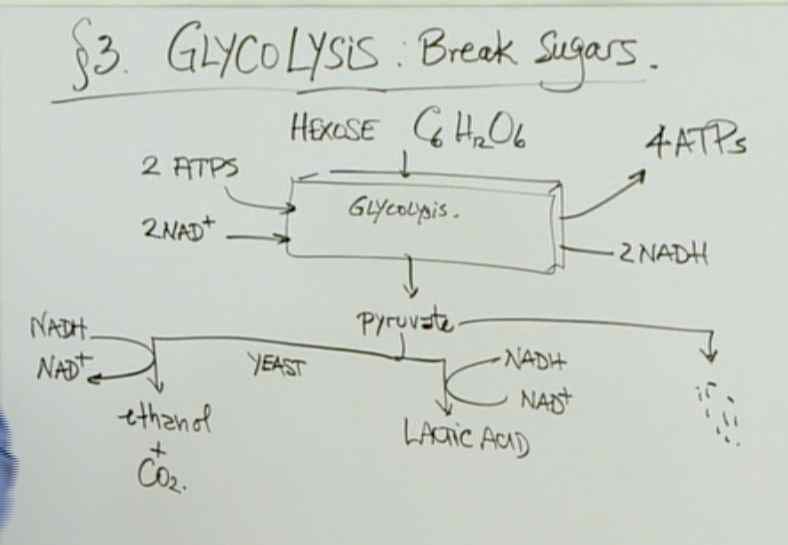 §3. GLYCOLYSIS : Break Sugars.
HEXOSE C6H12O6
2 ATPS
4 ATPs
GLYCOLYSIS.
2NAD+
2NADH
pyruvate
NADH
NAD+
YEAST
NADH
NAD+
ethanol
+
CO2.
LACTIC ACID